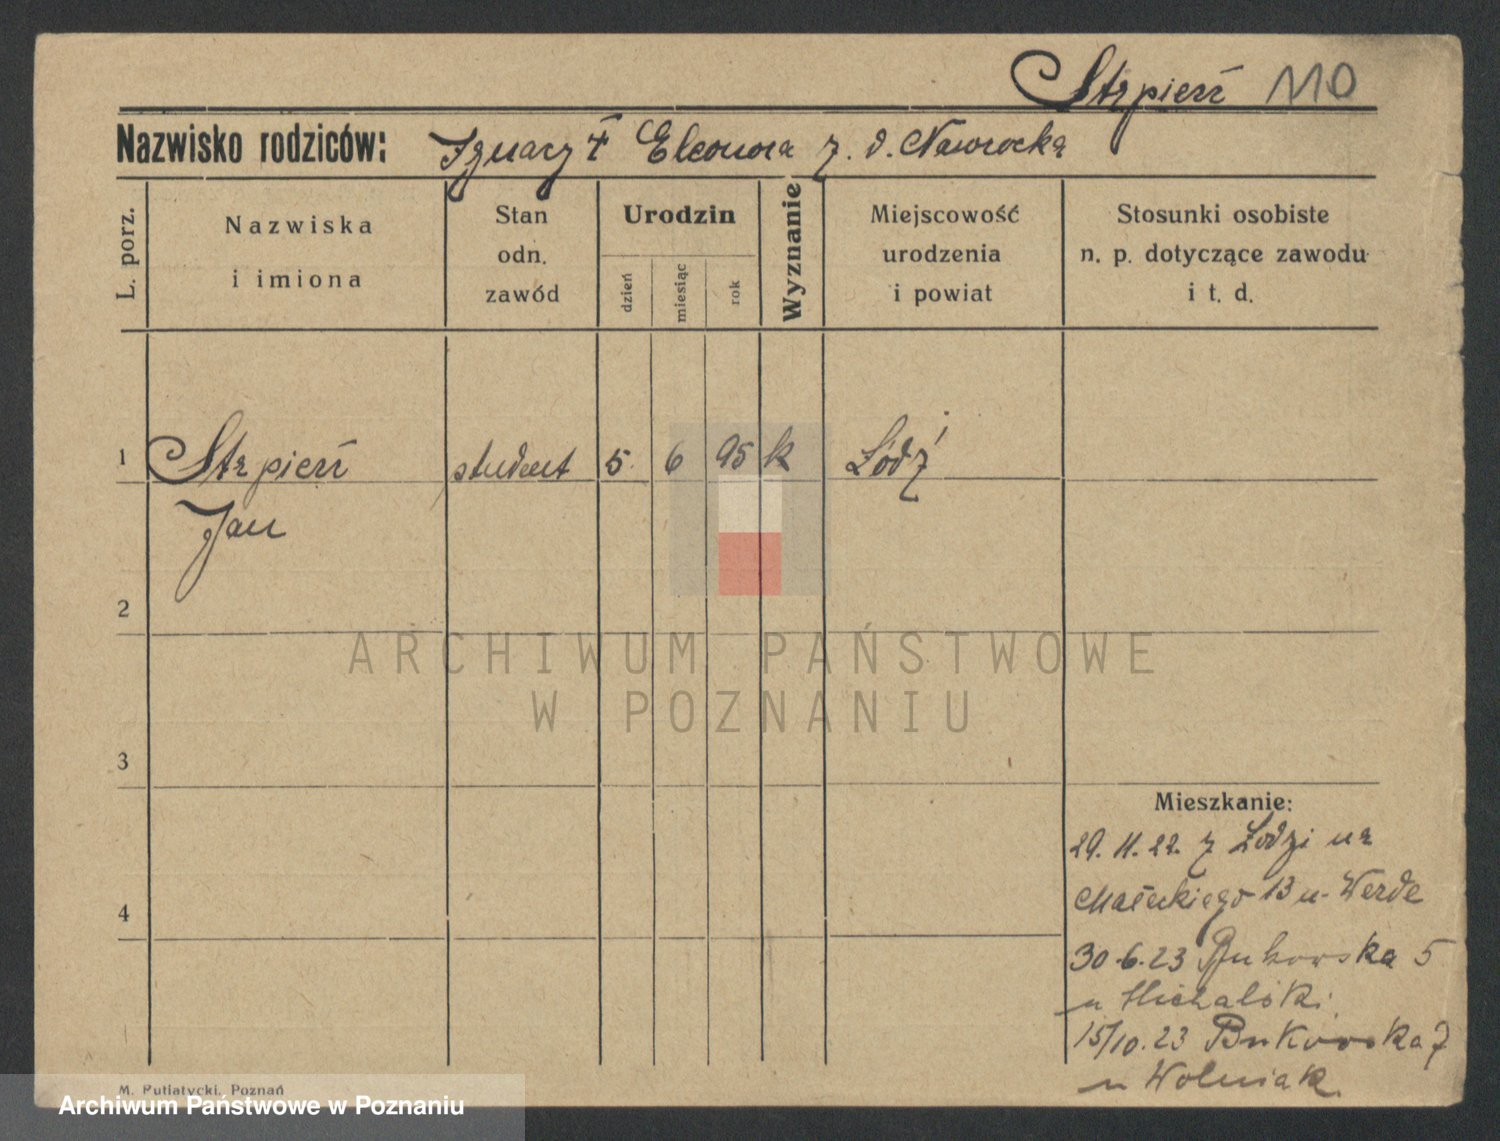 Stępień 110
Nazwisko rodziców: Ignacy † Eleonora z. d. Nawrocka
L. porz.
Nazwiska
i imiona
Stan
odn.
zawód
Urodzin
dzień
miesiąc
rok
Wyznanie
Miejscowość
urodzenia
i powiat
Stosunki osobiste
n. p. dotyczące zawodu
i t. d.
1 student 5. 6 95 k Łódź
Jan
2
3
4
Mieszkanie:
29. 11. 22. z Łodzi na
Małeckiego 13 u. Werde
30.6.23 Bukowska 5
u Michalski.
15/10.23 Bukowska 7
u Wolniak
M. Putiatycki, Poznań
ARCHIWUM PAŃSTWOWE
W POZNANIU
Archiwum Państwowe w Poznaniu